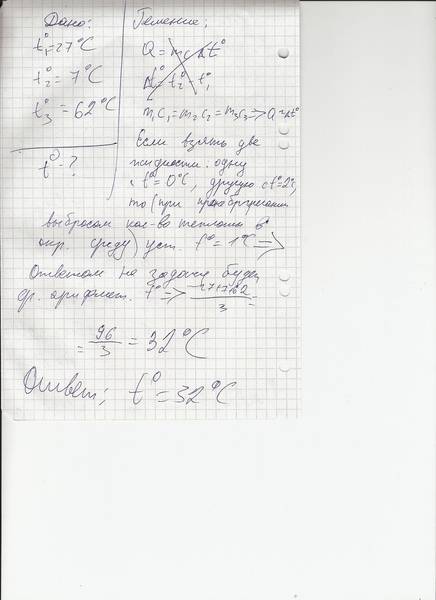 Дано:
t°₁=27°C
t°₂=7°C
t°₃=62°C
t°-?
Решение:
Q=mcΔt°
Δt°=t°₂-t°₁
m₁c₁=m₂c₂=m₃c₃=>Q~Δt°
Если взять две
жидкости: одну
с t°=0°C, другую с t°=2°C,
то (при пренебрежении
выбросом кол-во теплоты в
окр. среду) уст. t°=1°C=>
Ответом на задачу будет
ср. арифмет. t°=>(27+7+62)/3=
=96/3=32°C
Ответ: t°=32°C